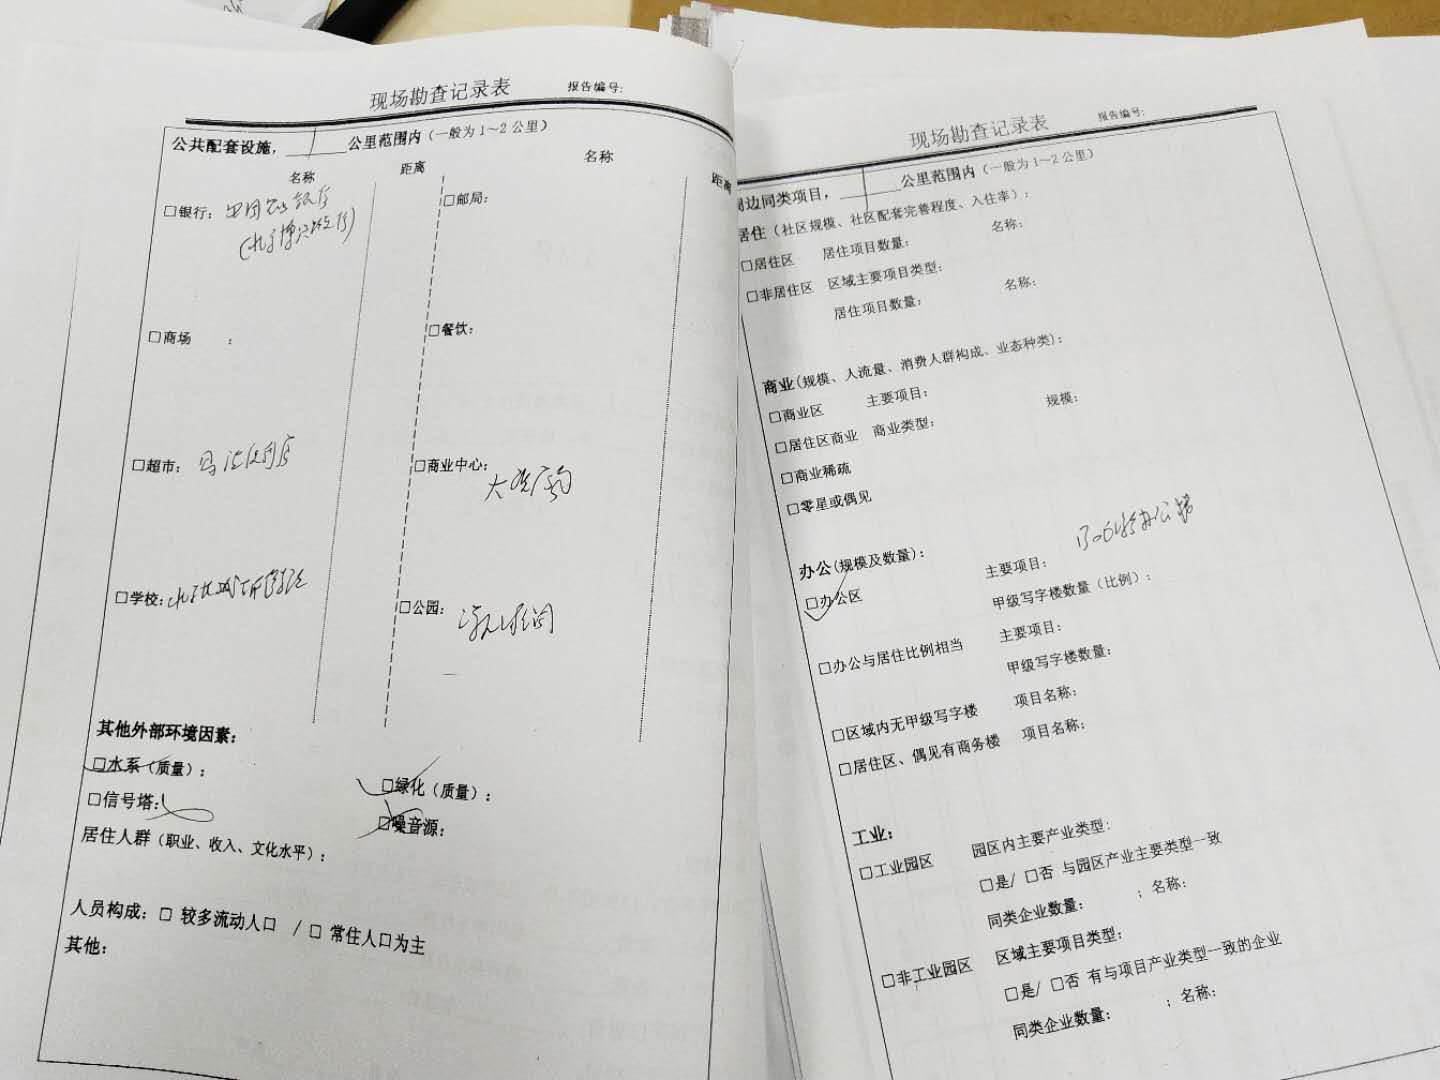 现场勘查记录表 报告编号:
公共配套设施，1公里范围内（一般为1～2公里）
名称 距离 名称 距离
□银行： 中国农业银行 □邮局：
□商场 ： □餐饮：
□超市： □商业中心：
□学校： □公园：
其他外部环境因素：
□水系（质量）： □绿化（质量）：
□信号塔： □噪音源：
居住人群（职业、收入、文化水平）：
人员构成：□ 较多流动人口 / □ 常住人口为主
其他：
现场勘查记录表 报告编号:
周边同类项目，1公里范围内（一般为1～2公里）
居住（社区规模、社区配套完善程度、入住率）：
□居住区 居住项目数量： 名称：
□非居住区 区域主要项目类型：
居住项目数量： 名称：
商业(规模、人流量、消费人群构成、业态种类)：
□商业区 主要项目：
□居住区商业 商业类型： 规模：
□商业稀疏
□零星或偶见
办公(规模及数量)：
□办公区 主要项目： 办公楼
甲级写字楼数量（比例）：
□办公与居住比例相当 主要项目：
甲级写字楼数量：
□区域内无甲级写字楼 项目名称：
□居住区、偶见有商务楼 项目名称：
工业：
□工业园区 园区内主要产业类型：
□是/ □否 与园区产业主要类型一致
同类企业数量： ；名称：
□非工业园区 区域主要项目类型：
□是/ □否 有与项目产业类型一致的企业
同类企业数量： ；名称：